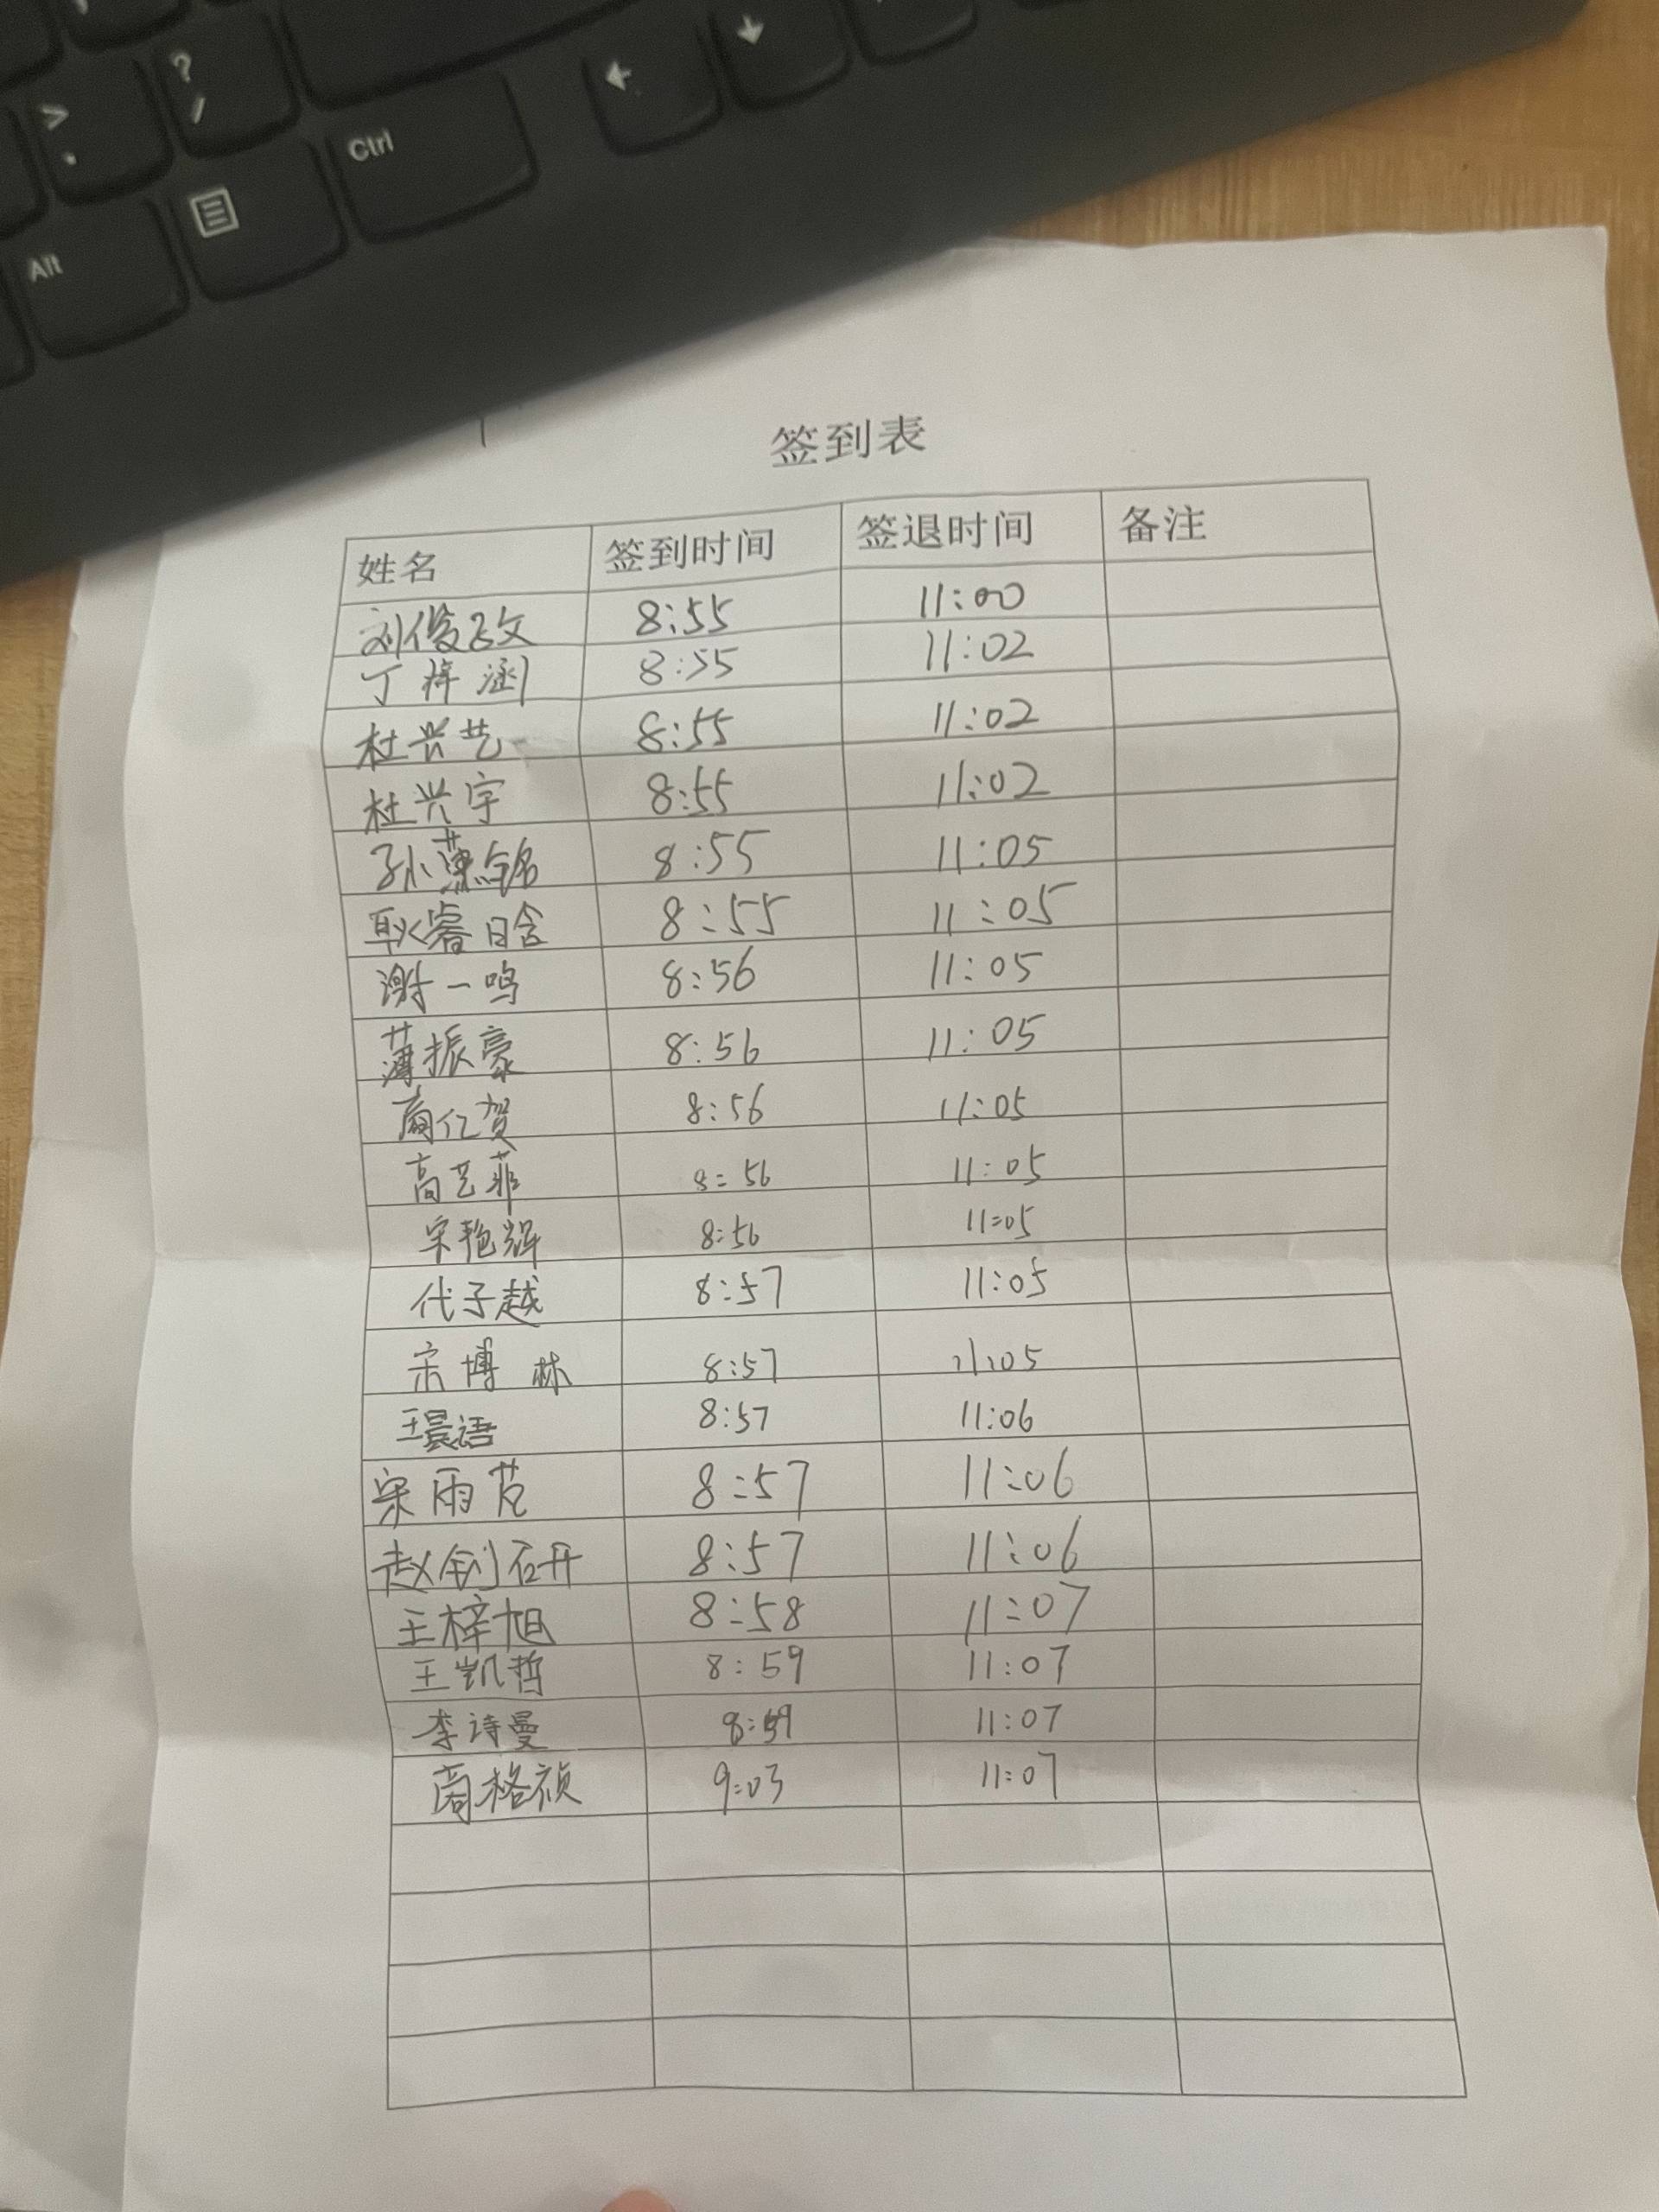 ?
>
/
.
Ctrl
Alt
签到表
姓名 签到时间 签退时间 备注
刘俊 8:55 11:00
丁梓涵 8:55 11:02
杜兴艺 8:55 11:02
杜兴宇 8:55 11:02
孙铭 8:55 11:05
耿睿晗 8:55 11:05
谢一鸣 8:56 11:05
薄振豪 8:56 11:05
商仁贺 8:56 11:05
高艺菲 8:56 11:05
宋艳辉 8:56 11:05
代子越 8:57 11:05
宋博林 8:57 11:05
王语 8:57 11:06
宋雨芃 8:57 11:06
赵钊研 8:57 11:06
王梓旭 8:58 11:07
王凯哲 8:59 11:07
李诗曼 8:59 11:07
商格祯 9:03 11:07